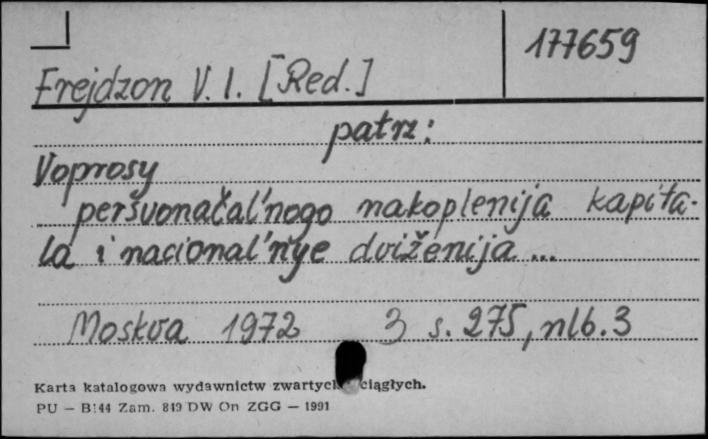 177659
Frejdzon V. I. [Red.]
patrz:
Voprosy
peršvonačal'nogo nakoplenija kapita-
la i nacional'nye dviženija...
Moskva 1972 3 s. 275, nlb. 3
Karta katalogowa wydawnictw zwartych ciągłych.
PU — B144 Zam. 849 DW On ZGG — 1991